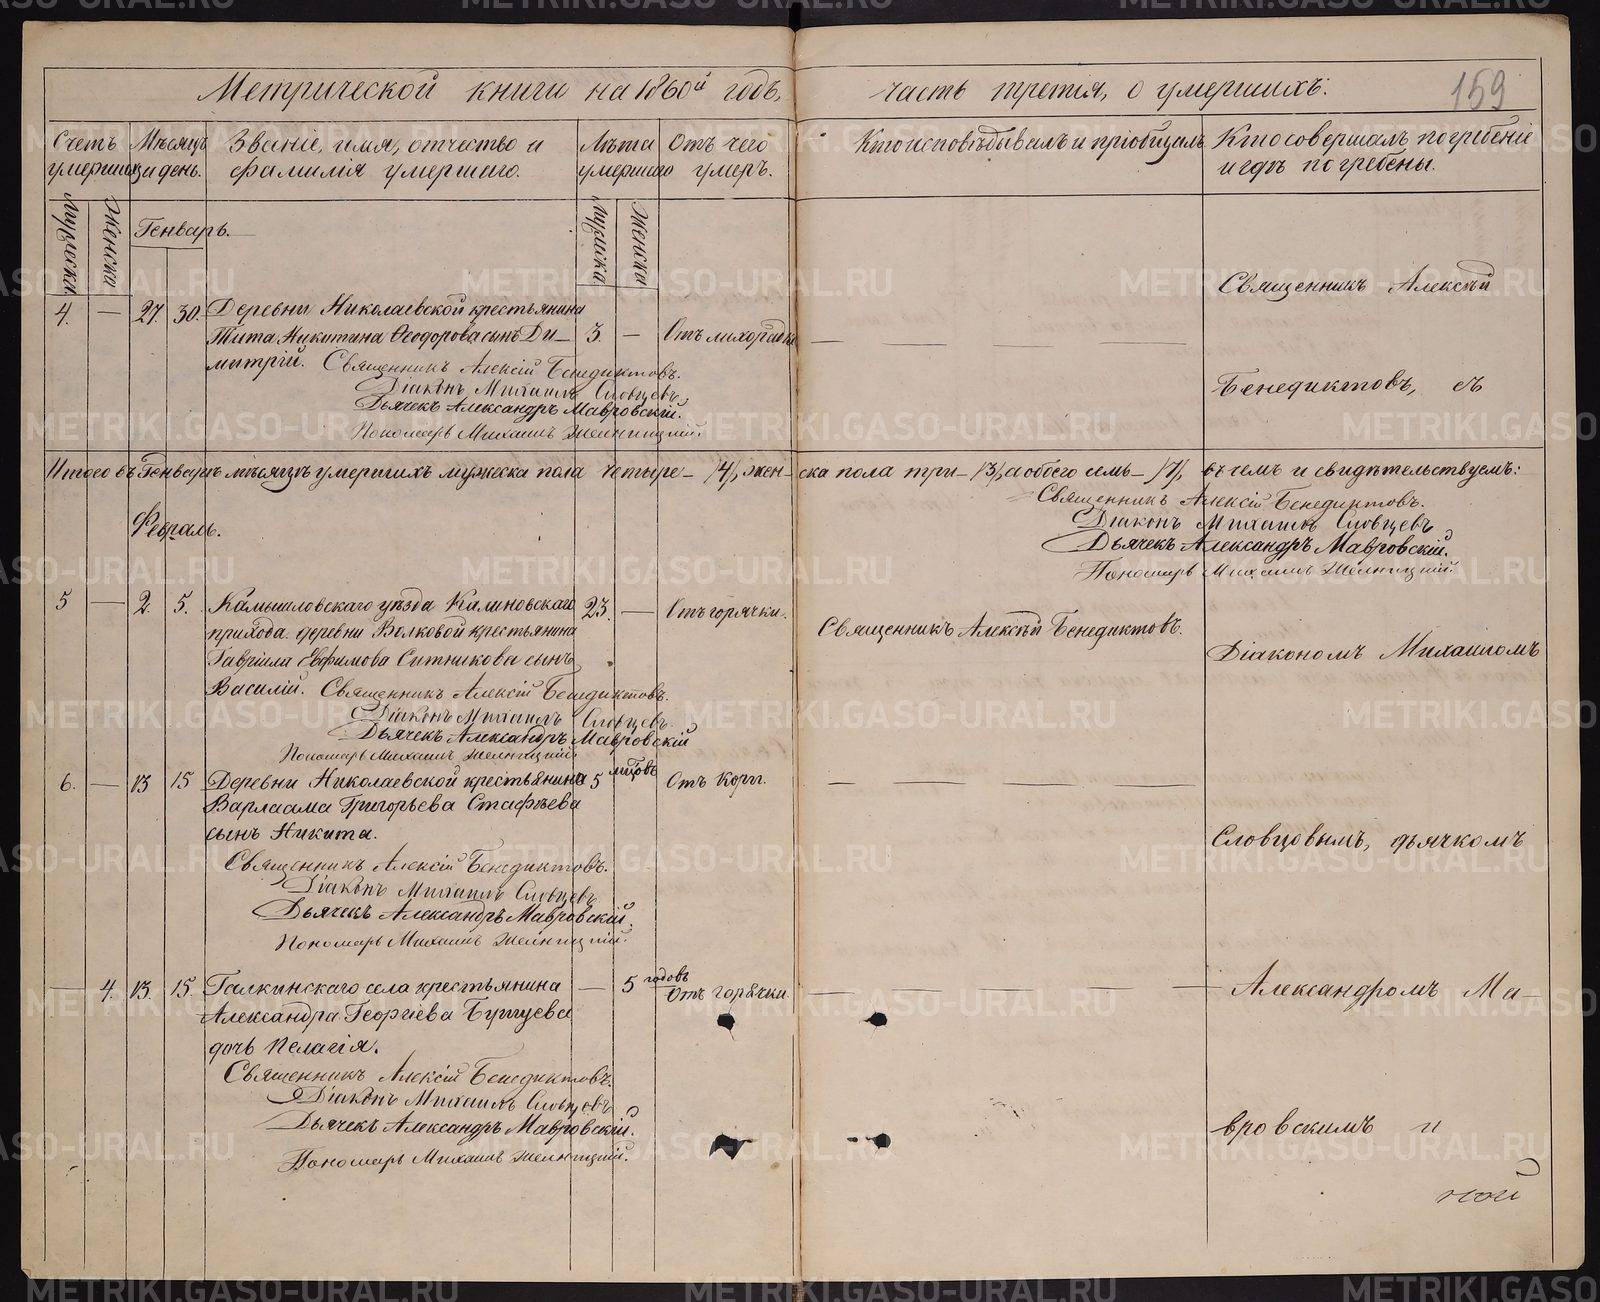 Метрической книги на 1860й годъ, часть третія, о умершихъ. 159
Счетъ умершихъ. Мѣсяцъ и день. Званіе, имя, отчество и фамилія умершаго. Лѣта умершаго Отъ чего умеръ. Кто исповѣдывалъ и пріобщалъ. Кто совершалъ погребеніе и гдѣ погребены.
Мужеска Женска Генварь. Мужеска Женска
Священникъ Алексѣй
4. — 27. 30. Деревни Николаевской крестьянина 3. — Отъ лихорадки
Тита Никитина Ѳеодорова сынъ Ди-
митрій. Священникъ Алексій Бенедиктовъ.
Діаконъ Михаилъ Словцевъ
Дьячекъ Александръ Мавровскій.
Пономарь Михаилъ
Бенедиктовъ, съ
Итого въ Генварѣ мѣсяцѣ умершихъ мужеска пола четыре /4/, женска пола три /3/, а обоего семь /7/, въ чемъ и свидѣтельствуемъ:
Священникъ Алексій Бенедиктовъ.
Діаконъ Михаилъ Словцевъ
Дьячекъ Александръ Мавровскій.
Пономарь Михаилъ
Февраль.
5 — 2. 5. Камышловскаго уѣзда Калиновскаго 23. — Отъ горячки. Священникъ Алексѣй Бенедиктовъ.
прихода деревни Волковой крестьянина
Гавріила Евфимова Ситникова сынъ
Василій. Священникъ Алексій Бенедиктовъ.
Діаконъ Михаилъ Словцевъ
Дьячекъ Александръ Мавровскій
Пономарь Михаилъ
Діакономъ Михаиломъ
6. — 13 15 Деревни Николаевской крестьянина 5 мѣсяцовъ Отъ кори.
Варлаама Григорьева Стафѣева
сынъ Никита.
Священникъ Алексій Бенедиктовъ.
Діаконъ Михаилъ Словцевъ
Дьячекъ Александръ Мавровскій.
Пономарь Михаилъ
Словцовымъ, дьячкомъ
— 4. 13. 15. Галкинскаго села крестьянина — 5 годовъ Отъ горячки.
Александра Георгіева
дочь Пелагія.
Священникъ Алексій Бенедиктовъ.
Діаконъ Михаилъ Словцовъ
Дьячекъ Александръ Мавровскій.
Пономарь Михаилъ
Александромъ Ма-
вровскимъ и
METRIKI.GASO-URAL.RU